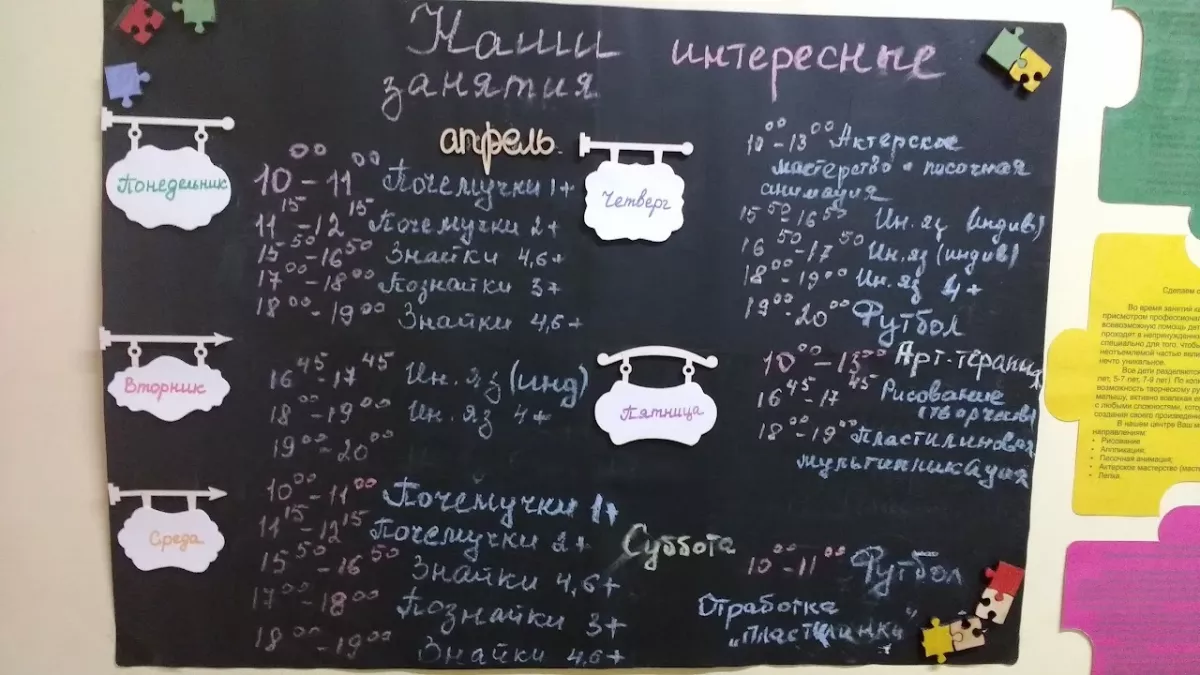 Наши интересные
занятия
апрель
Понедельник
10⁰⁰-11⁰⁰ Почемучки 1+
11¹⁵-12¹⁵ Почемучки 2+
15⁵⁰-16⁵⁰ Знайки 4,6+
17⁰⁰-18⁰⁰ Познайки 3+
18⁰⁰-19⁰⁰ Знайки 4,6+
Вторник
16⁴⁵-17⁴⁵ Ин. яз (инд)
18⁰⁰-19⁰⁰ Ин. яз 4+
19⁰⁰-20⁰⁰
Среда
10⁰⁰-11⁰⁰ Почемучки 1+
11¹⁵-12¹⁵ Почемучки 2+
15⁵⁰-16⁵⁰ Знайки 4,6+
17⁰⁰-18⁰⁰ Познайки 3+
18⁰⁰-19⁰⁰ Знайки 4,6+
Четверг
10⁰⁰-13⁰⁰ Актерское
мастерство
песочная
анимация
15⁵⁰-16⁵⁰ Ин. яз (индив)
16⁵⁰-17⁵⁰ Ин. яз (индив)
18⁰⁰-19⁰⁰ Ин. яз 4+
19⁰⁰-20⁰⁰ Футбол
Пятница
10⁰⁰-13⁰⁰ Арт-терапия
16⁴⁵-17⁴⁵ Рисование
(творчество)
18⁰⁰-19⁰⁰ Пластилиновая
мультипликация
Суббота
10⁰⁰-11⁰⁰ Футбол
Отработка
"Пластилинки"
Сделаем
Во время занятий
присмотром
всевозможную помощь
проходят в
специально для того, чтобы
неотъемлемой частью
нечто уникальное.
Все дети
лет, 5-7 лет, 7-9 лет). По
возможность творческому
малышу, активно вовлекая
с любыми сложностями,
создания своего
В нашем центре Ваш
направлениям:
• Рисование
• Аппликация;
• Песочная анимация;
• Актерское мастерство
• Лепка.